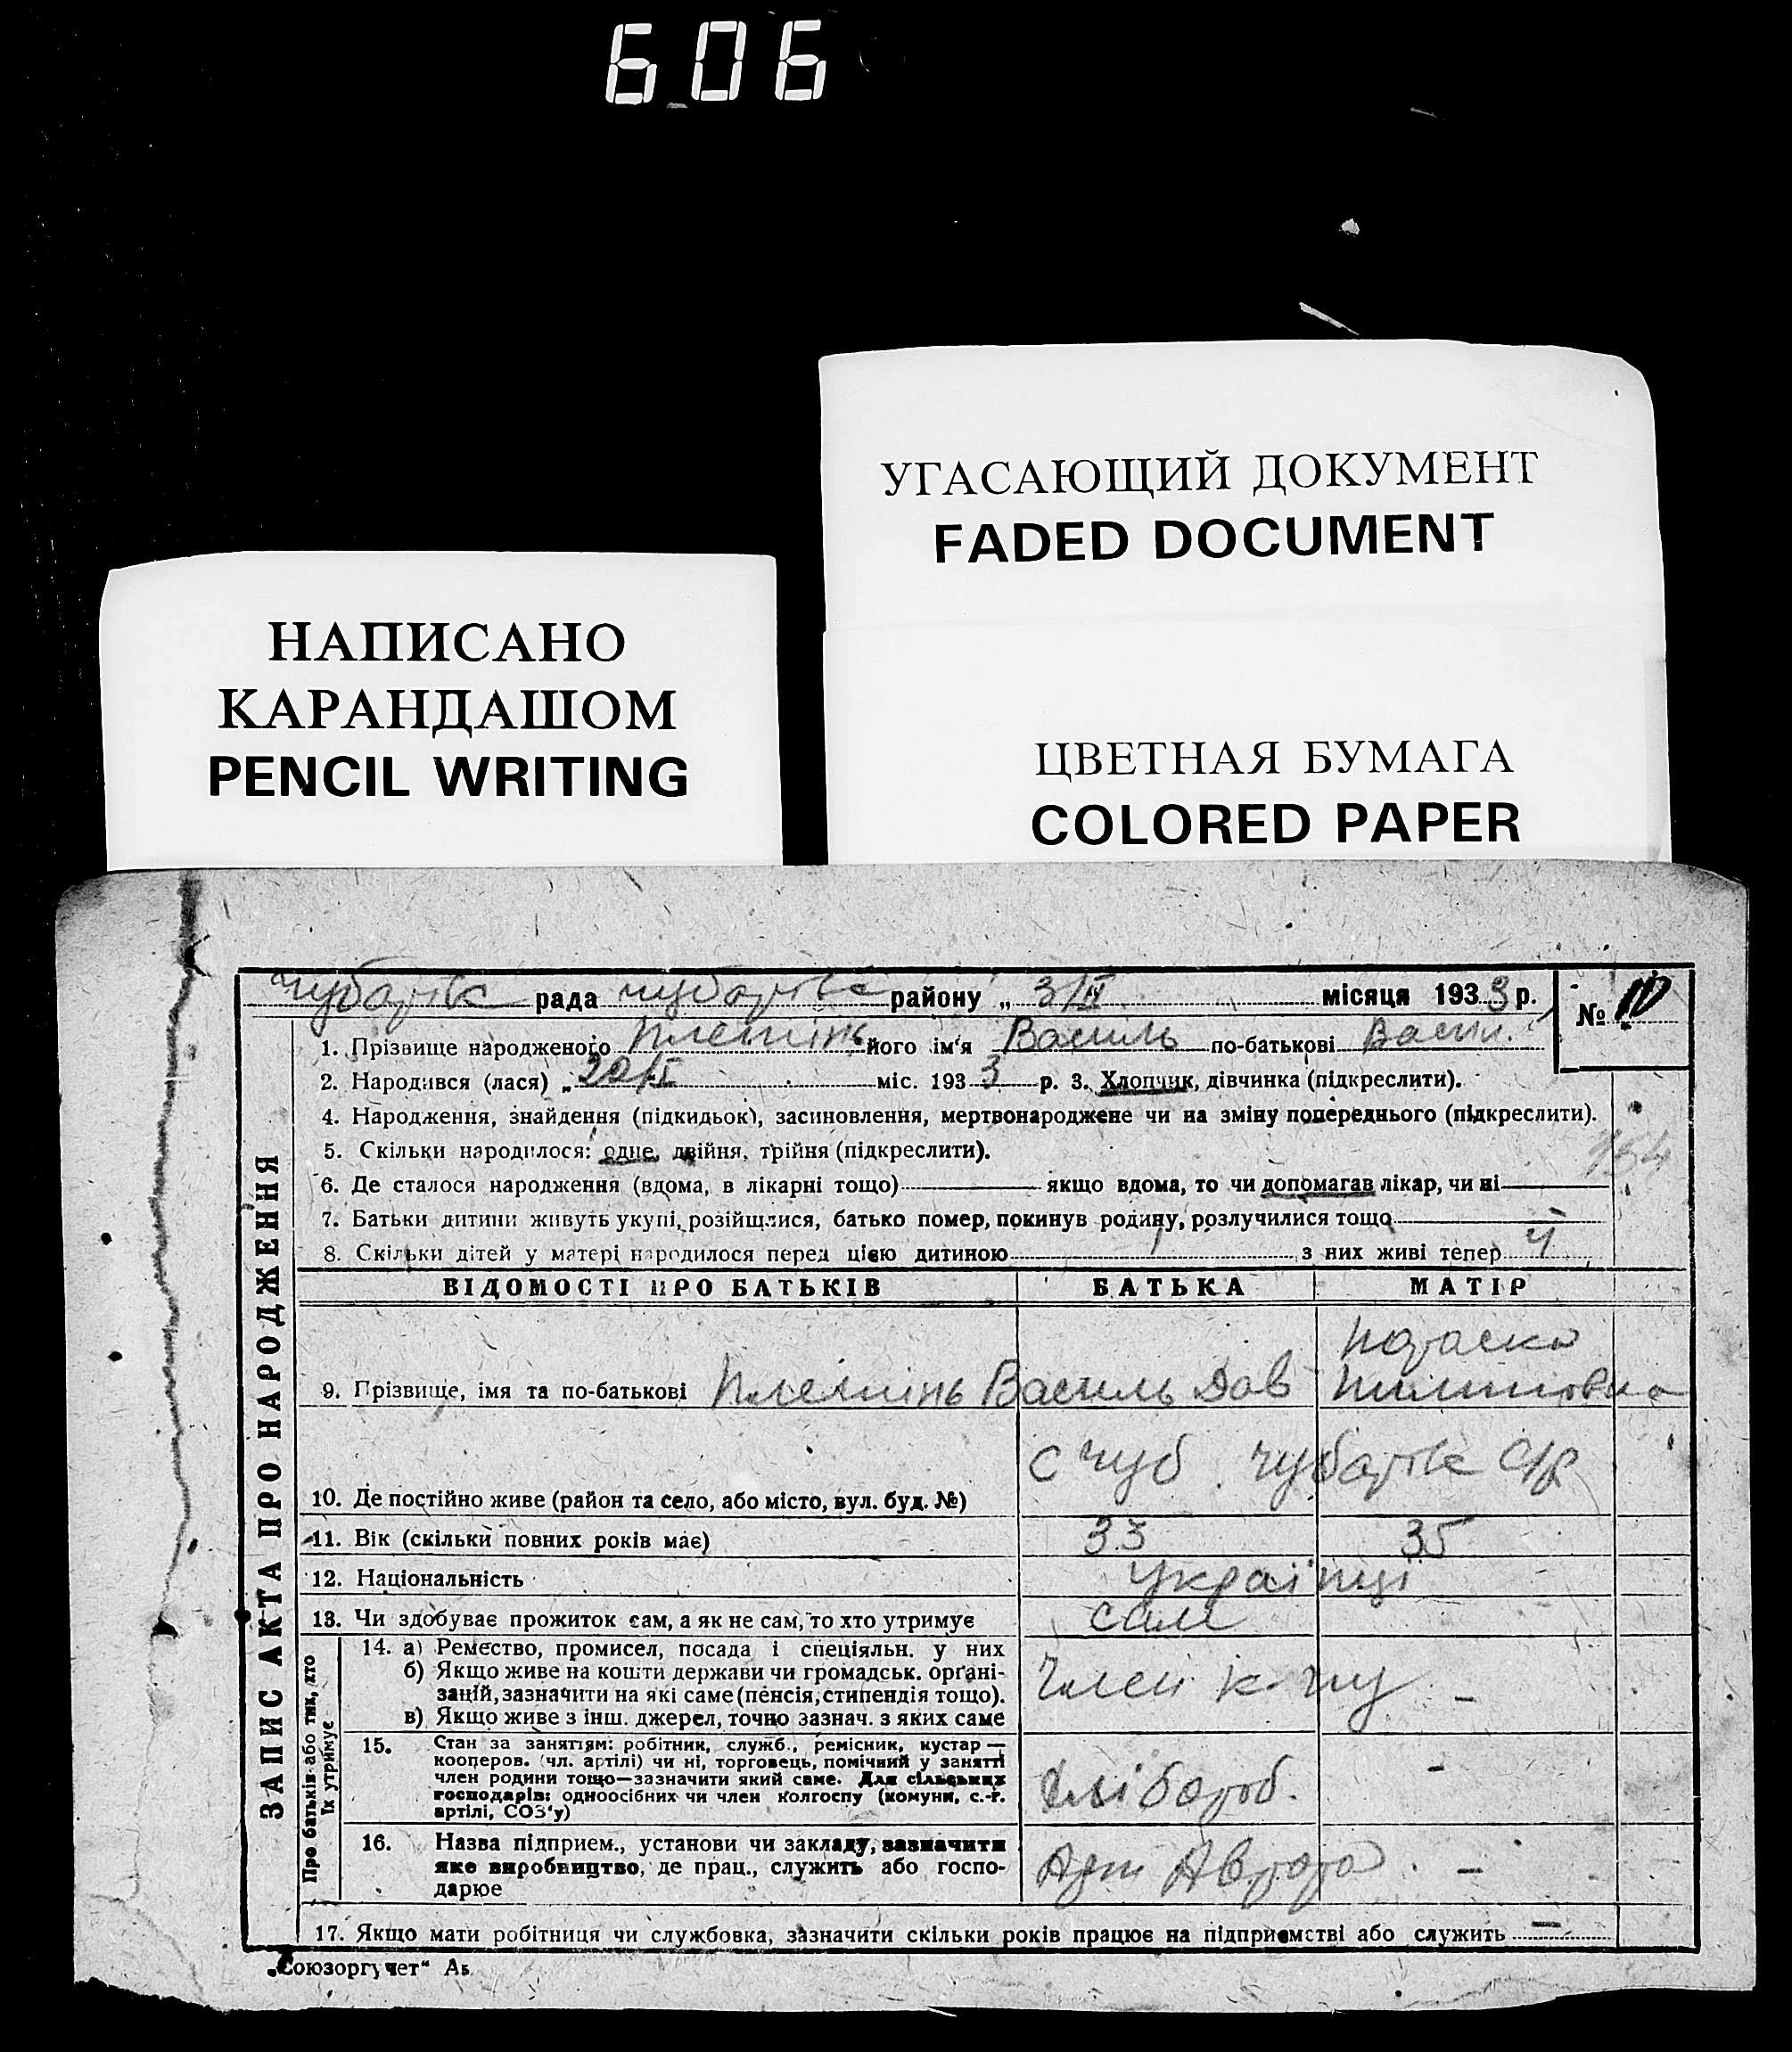 606
УГАСАЮЩИЙ ДОКУМЕНТ
FADED DOCUMENT
НАПИСАНО
КАРАНДАШОМ
PENCIL WRITING
ЦВЕТНАЯ БУМАГА
COLORED PAPER
рада району „ 3/ІІ місяця 1933 р. № 10
1. Прізвище народженого його ім'я Василь по-батькові Васил.
2. Народився (лася) „ 20/І міс. 1933 р. 3. Хлопчик, дівчинка (підкреслити).
4. Народження, знайдення (підкидьок), засиновлення, мертвонароджене чи на зміну попереднього (підкреслити).
5. Скільки народилося: одне, двійня, трійня (підкреслити).
154
6. Де сталося народження (вдома, в лікарні тощо) якщо вдома, то чи допомагав лікар, чи ні
7. Батьки дитини живуть укупі, розійшлися, батько помер, покинув родину, розлучилися тощо
8. Скільки дітей у матері народилося перед цією дитиною з них живі тепер 4
ЗАПИС АКТА ПРО НАРОДЖЕННЯ
ВІДОМОСТІ ПРО БАТЬКІВ БАТЬКА МАТІР
9. Прізвище, імя та по-батькові Василь Дав
10. Де постійно живе (район та село, або місто, вул. буд. №) с Чуб с/р
11. Вік (скільки повних років має) 33 35
12. Національність Українці
13. Чи здобуває прожиток сам, а як не сам, то хто утримує сам
Про батьків або тих, хто їх утримує
14. а) Ремество, промисел, посада і спеціяльн. у них
б) Якщо живе на кошти держави чи громадськ. орґані-
заній, зазначити на які саме (пенсія, стипендія тощо).
в) Якщо живе з інш. джерел, точно зазнач. з яких саме
Член к-гу –
15. Стан за занятям: робітник, служб., ремісник, кустар —
кооперов. (чл. артілі) чи ні, торговець, помічний у занятті
член родини тощо—зазначити який саме. Для сільських
господарів: одноосібних чи член колгоспу (комуни, с.-г.
артілі, СОЗ'у)
–
16. Назва підприєм., установи чи закладу, зазначити
яке виробництво, де прац., служить або госпо-
дарює
Арт –
17. Якщо мати робітниця чи службовка, зазначити скільки років працює на підприємстві або служить —
„Союзоргучет“